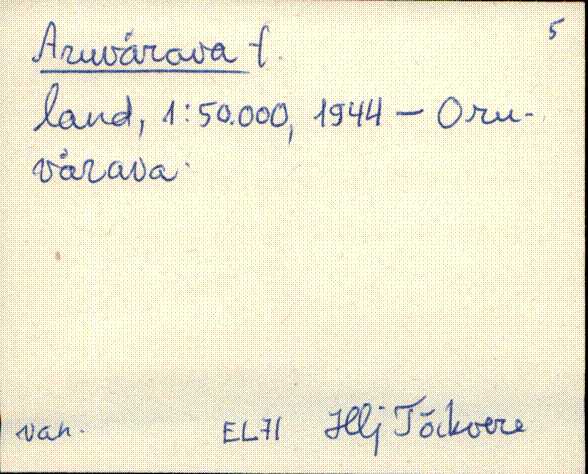 5
Aruvärava t.
land, 1:50.000, 1944 — Oru-
värava.
van. EL71 Hlj Tõikvere